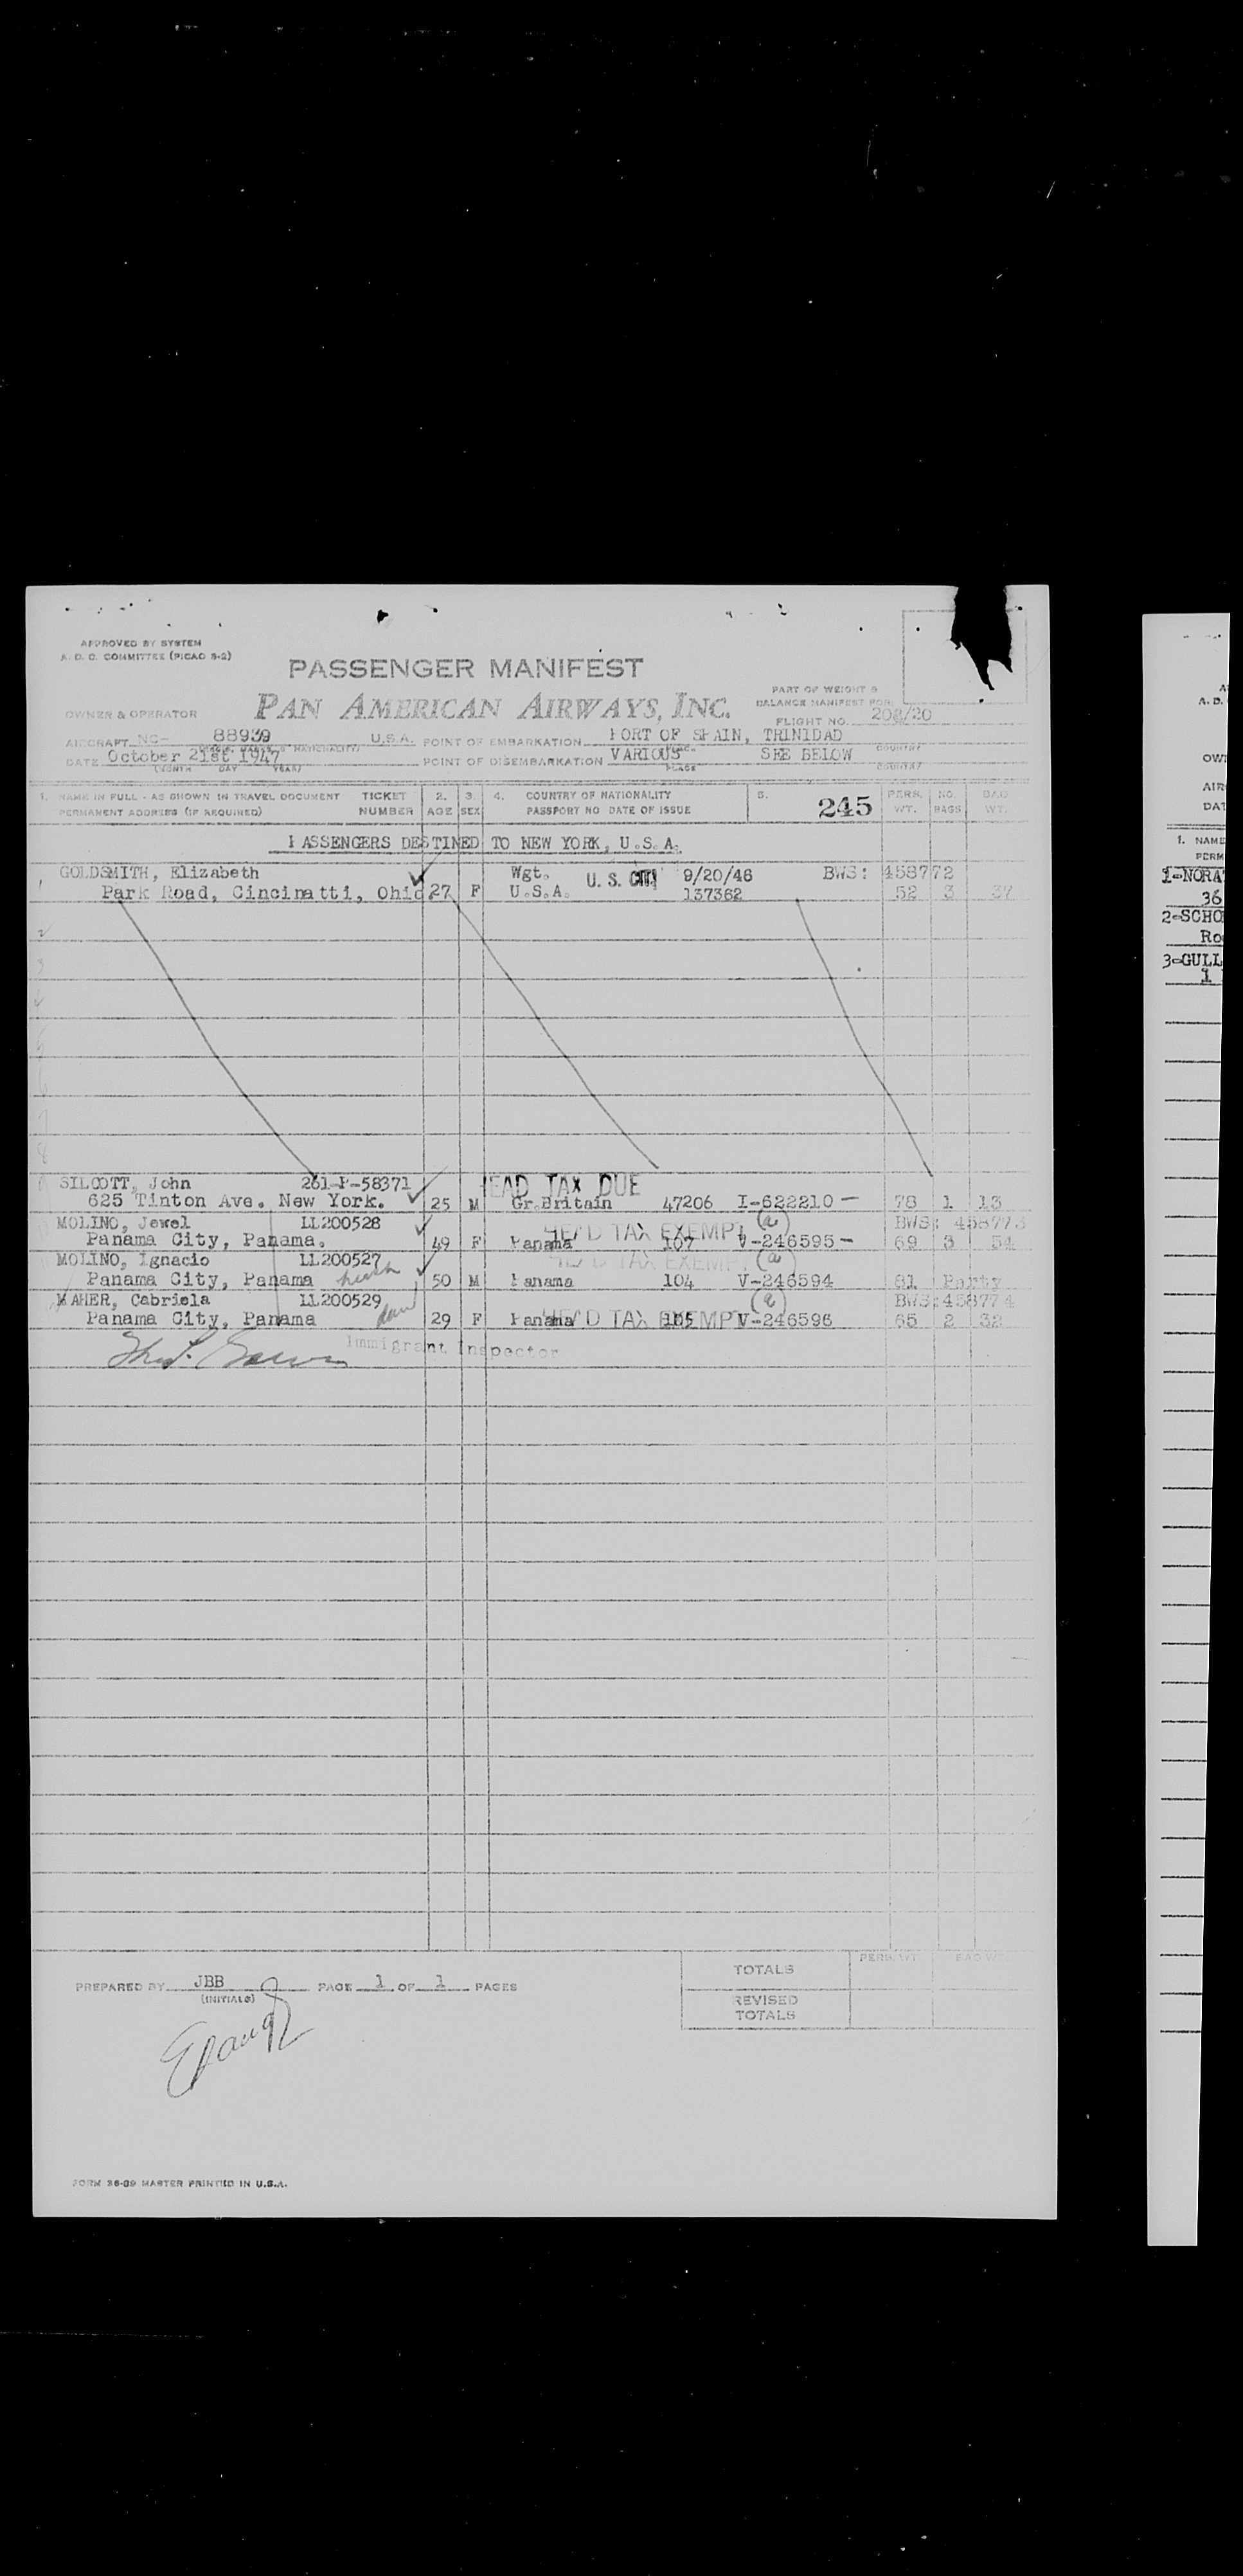 APPROVED BY SYSTEM
A. D. C. COMMITTEE (PICAO 8-2)
PASSENGER MANIFEST
PAN AMERICAN AIRWAYS, INC.
PART OF WEIGHT &
BALANCE MANIFEST FOR
OWNER & OPERATOR
FLIGHT NO. 208/20
AIRCRAFT NC- 88939 U.S.A. POINT OF EMBARKATION PORT OF SPAIN, TRINIDAD
DATE October 21st 1947 POINT OF DISEMBARKATION VARIOUS SEE BELOW
(MONTH DAY YEAR) PLACE COUNTRY
1. NAME IN FULL - AS SHOWN IN TRAVEL DOCUMENT TICKET 2. 3. 4. COUNTRY OF NATIONALITY 5. 245 PERS. NO. BAG
PERMANENT ADDRESS (IF REQUIRED) NUMBER AGE SEX PASSPORT NO DATE OF ISSUE WT. BAGS WT.
PASSENGERS DESTINED TO NEW YORK, U.S.A.
GOLDSMITH, Elizabeth Wgt. U. S. CIT. 9/20/46 BWS: 458772
1 Park Road, Cincinatti, Ohio 27 F U.S.A. 137362 52 3 37
SILCOTT, John 261-P-58371 HEAD TAX DUE
625 Tinton Ave. New York. 25 M Gr.Britain 47206 I-622210 — 78 1 13
MOLINO, Jewel LL200528 HEAD TAX EXEMPT (a) BWS: 458773
Panama City, Panama. 49 F Panama 107 V-246595 — 69 3 54
MOLINO, Ignacio LL200527 HEAD TAX EXEMPT (a)
Panama City, Panama 50 M Panama 104 V-246594 81 Party
MAHER, Cabriela LL200529 (a) BWS:458774
Panama City, Panama 29 F Panama HEAD TAX EXEMPT 105 V-246596 65 2 32
Immigrant Inspector
TOTALS PERS. WT. BAG WT.
PREPARED BY JBB PAGE 1 OF 1 PAGES
(INITIALS)
REVISED
TOTALS
FORM 36-09 MASTER PRINTED IN U.S.A.
A. D.
OW
AIR
DAT
1. NAME
PERM
1-NORA
36
2-SCHO
Ro
3-GULL
1